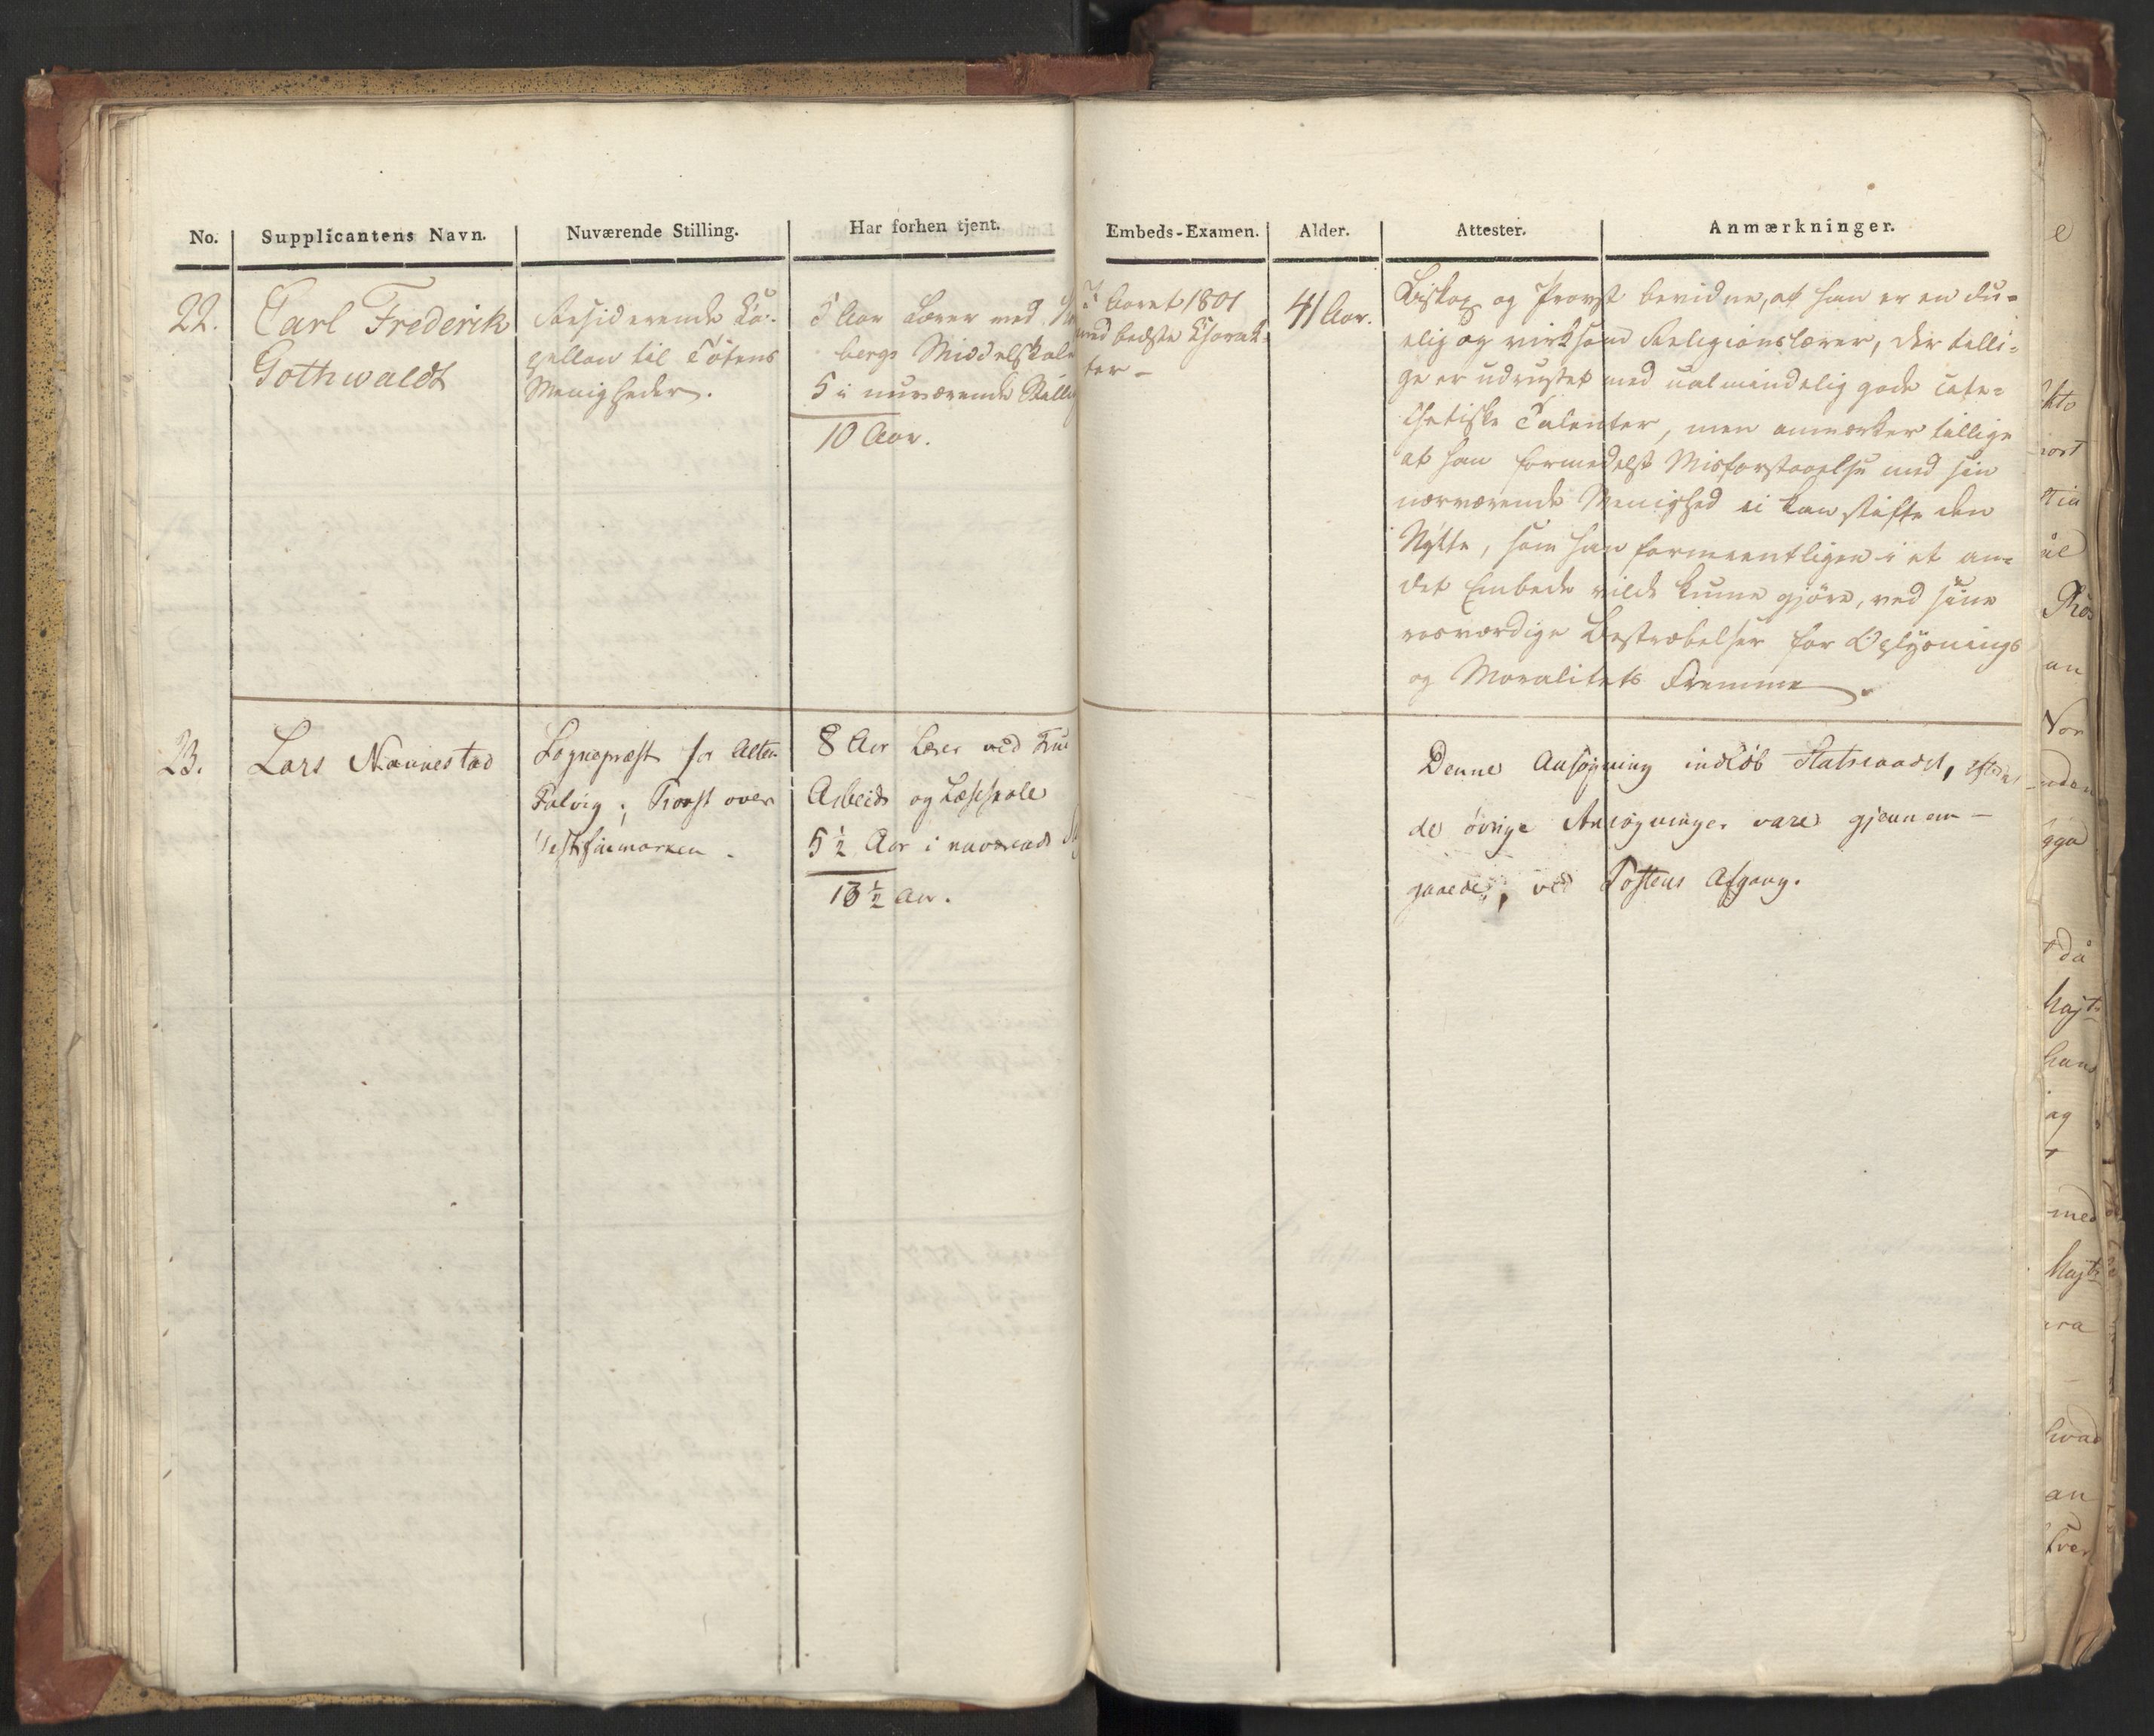 No.
Supplicantens Navn.
Nuværende Stilling.
Har forhen tjent.
Embeds-Examen.
Alder.
Attester.
Anmærkninger.
22.
Carl Frederik
Gothwaldt
Residerende Ca-
pellan til Totens
Menigheder.
5 Aar Lærer ved
bergs Middelskole
5 i nuværende Stilling
10 Aar.
i Aaret 1801
med bedste Charak-
ter-
41 Aar.
Biskop og Provst bevidne, at han er en du-
elig og virksom Religionslærer, der telli-
ge er udrustet med ualmindelig gode cate-
chetiske Talenter, men anmærker tillige
at han formedelst Misforstaaelse med sin
nærværende Menighed ei kan stifte den
Nytte, som han formeentligen i et an-
det Embede vilde kunne gjöre, ved sine
rosværdige Bestræbelser for Oplysnings
og Moralitets Fremme.
23.
Lars Nannestad
Sognepræst for Alten
Talvig; Provst over
Vestfinmarken.
8 Aar Lærer ved
Arbeids og Læseskole
5 1/2 Aar i nuværende
13 1/2 Aar.
Denne Ansögning indlöb Statsraadet, efterat
de övrige Ansögninger vare gjennem-
gaaede, ved Postens Afgang.